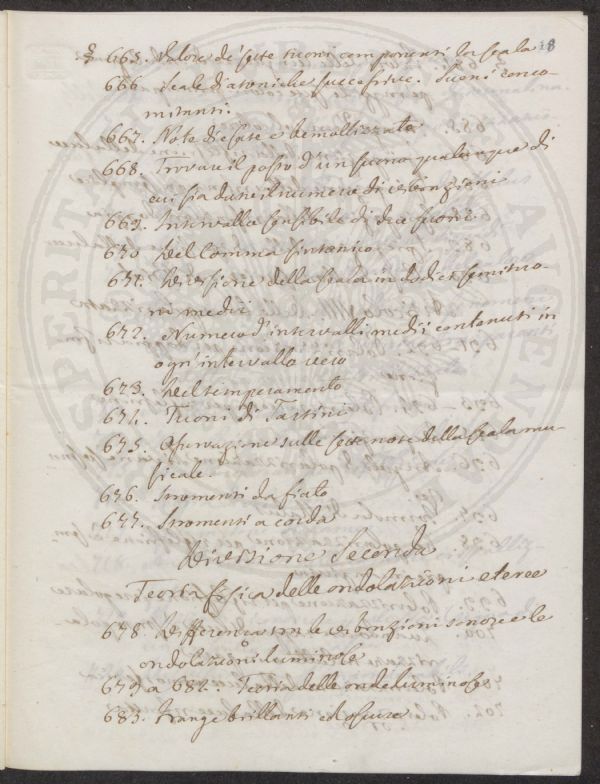 18
§ 665. Valore de' sette tuoni componenti la scala
666. Scale diatoniche successive. Suoni conco-
mitanti.
667. Note diesate e bemollizzate
668. Trovare il posto d'un suono qualunque di
cui sia dato il numero di vibrazioni
669. Intervallo sensibile di due suoni
670. Del Comma sintonico
671. Divisione della scala in dodici semituo-
ni medii
672. Numero d'intervalli medii contenuti in
ogn'intervallo vero
673. Del temperamento
674. Tuoni di Tartini
675. Osservazione sulle sette note della scala mu-
sicale.
676. Stromenti da fiato
677. Stromenti a corda
Divisione Seconda
Teoria fisica delle ondolazioni eteree
678. Differenza tra le vibrazioni sonore e le
ondolazioni luminose
679 a 682. Teoria delle onde luminose
683. Frange brillanti ed oscure